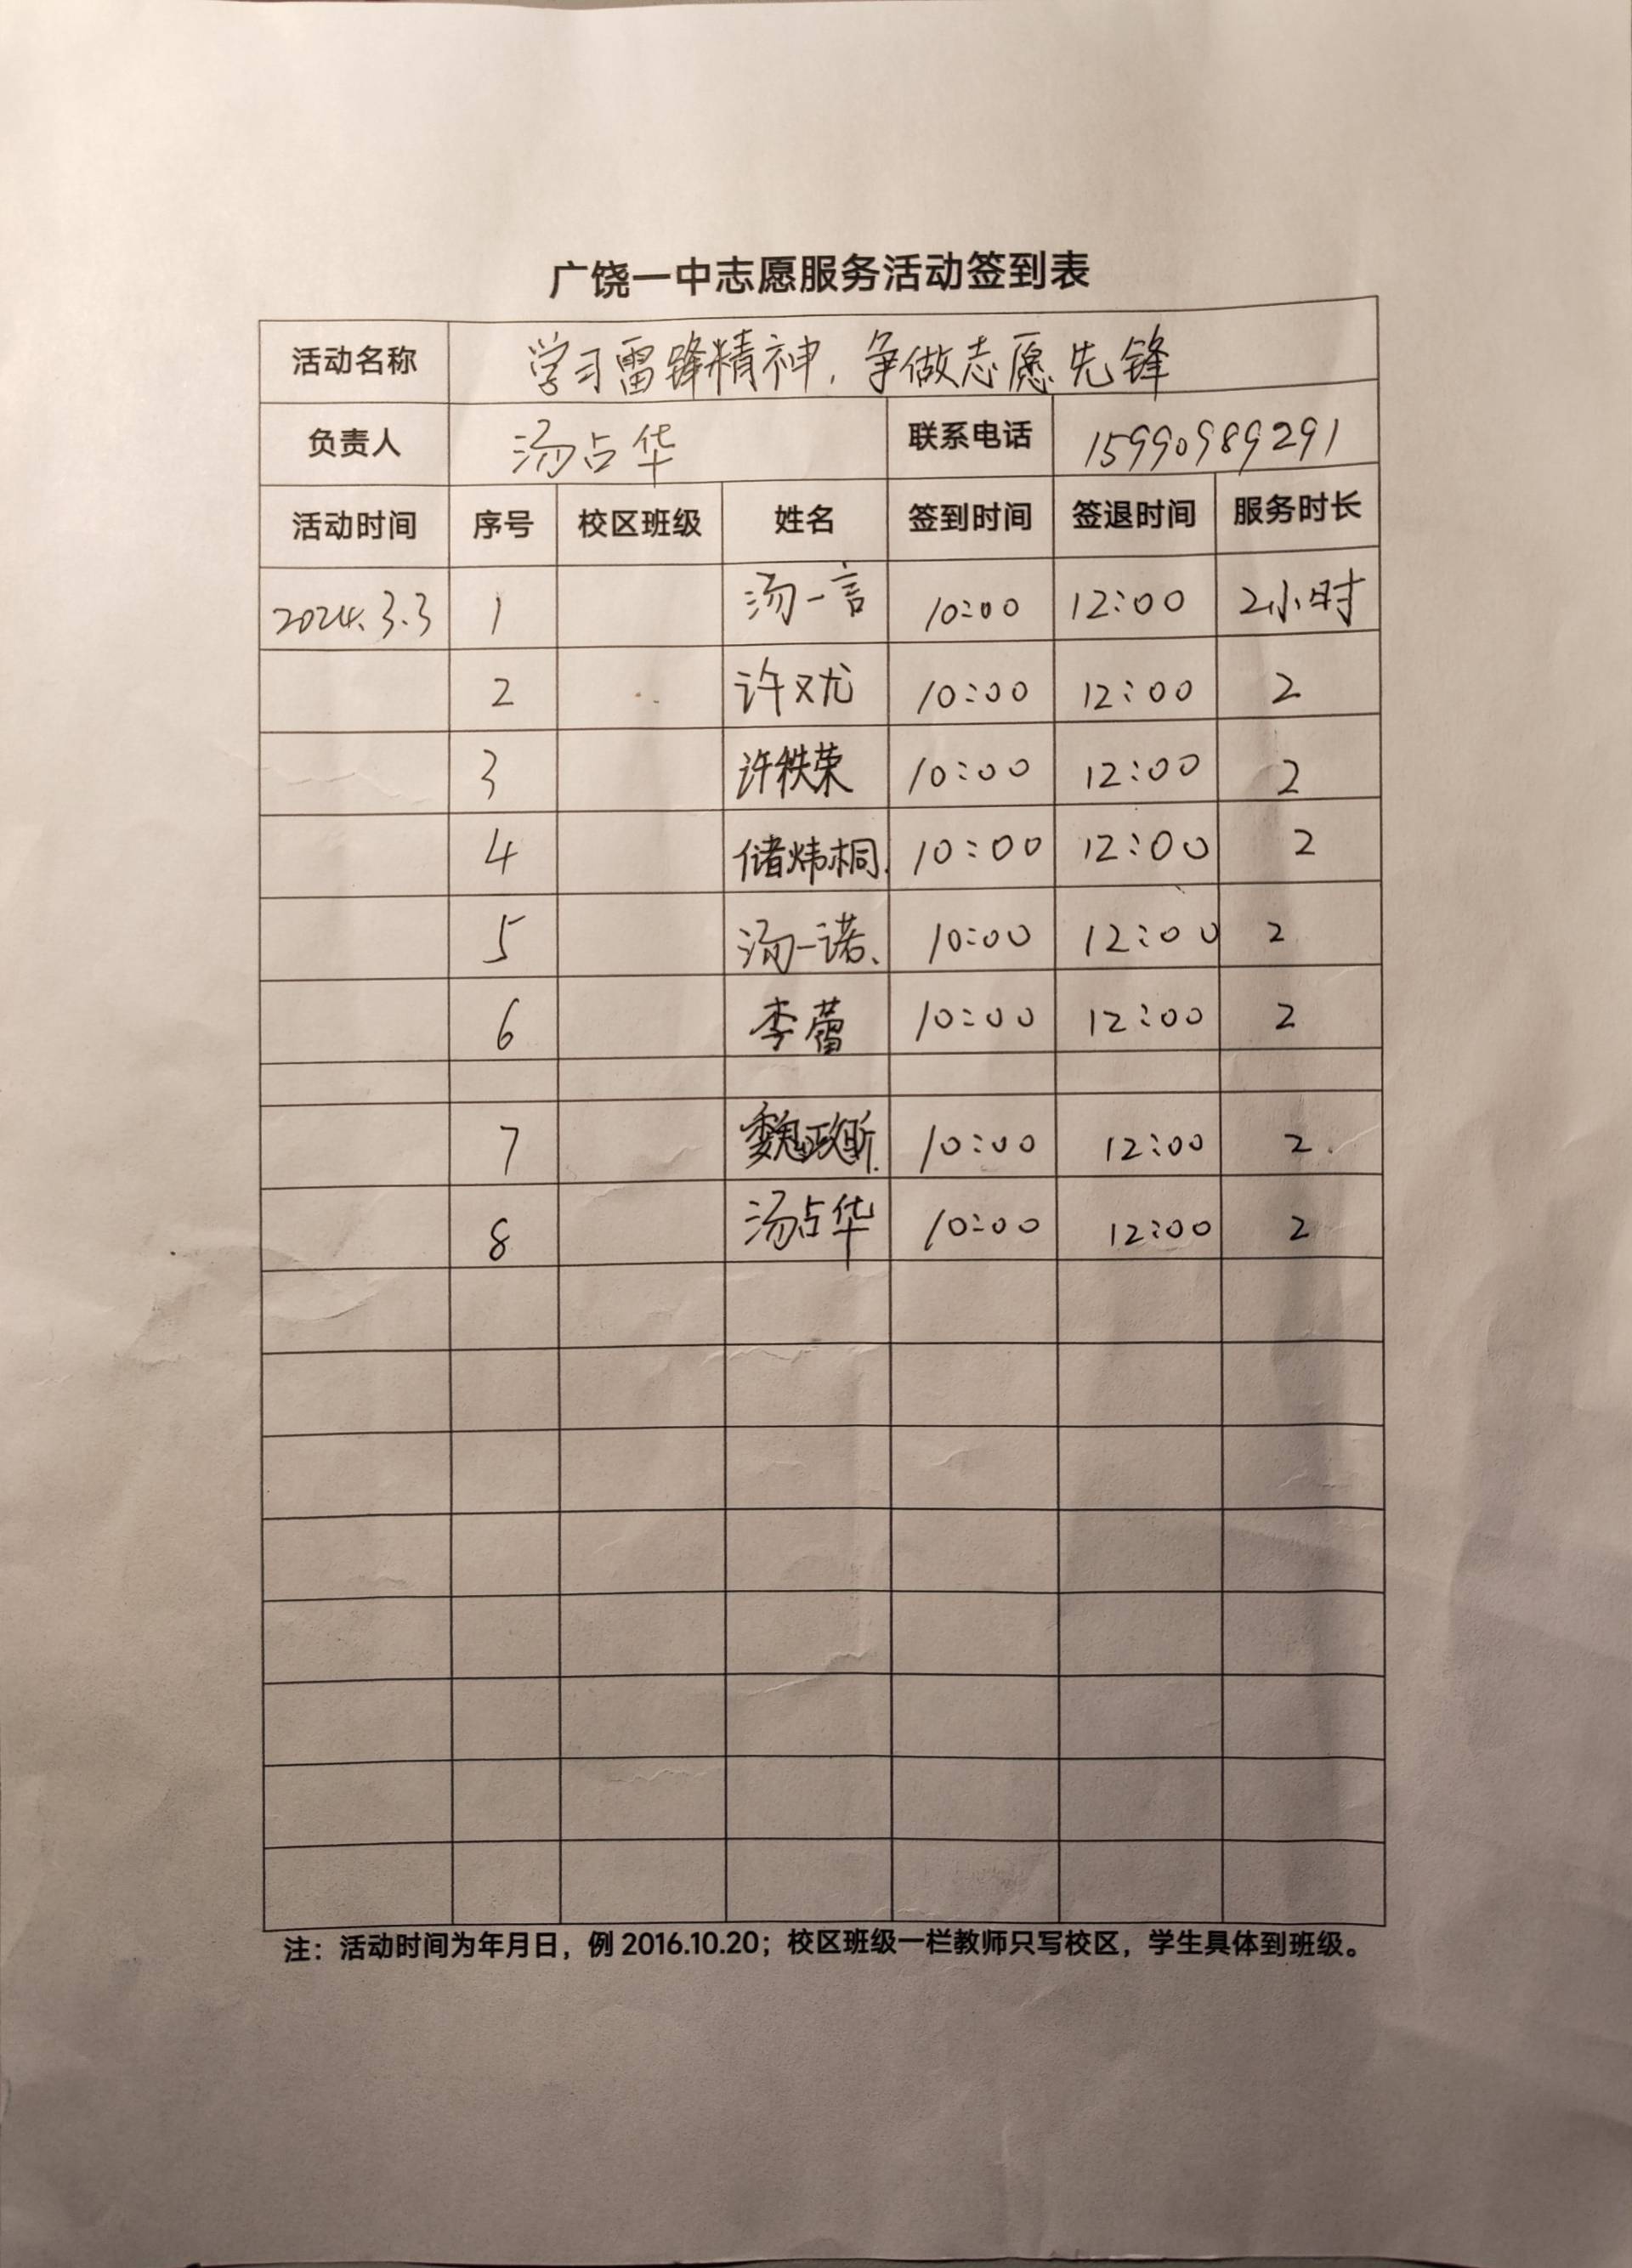 广饶一中志愿服务活动签到表
活动名称 学习雷锋精神，争做志愿先锋
负责人 汤占华 联系电话 15990989291
活动时间 序号 校区班级 姓名 签到时间 签退时间 服务时长
2024.3.3 1 汤一言 10:00 12:00 2小时
2 许又尤 10:00 12:00 2
3 许秩荣 10:00 12:00 2
4 储炜桐 10:00 12:00 2
5 汤一诺、 10:00 12:00 2
6 李蕾 10:00 12:00 2
7 魏政昕 10:00 12:00 2
8 汤占华 10:00 12:00 2
注：活动时间为年月日，例 2016.10.20；校区班级一栏教师只写校区，学生具体到班级。